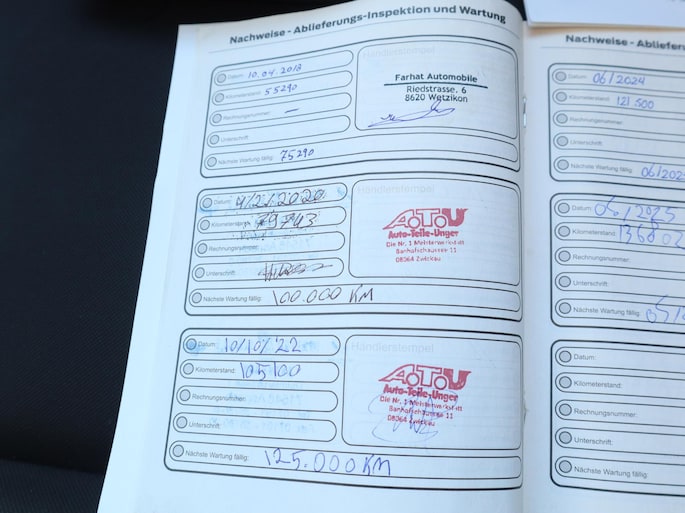 Nachweise - Ablieferungs-Inspektion und Wartung
Datum: 10.04.2018
Kilometerstand: 55290
Rechnungsnummer: —
Unterschrift:
Nächste Wartung fällig: 75290
Händlerstempel
Farhat Automobile
Riedstrasse. 6
8620 Wetzikon
Datum: 4/2/2020
Kilometerstand: 79743
Rechnungsnummer:
Unterschrift:
Nächste Wartung fällig: 100.000 KM
Händlerstempel
A.T.U
Auto-Teile-Unger
Die Nr. 1 Meisterwerkstatt
Bahnhofstrasse 11
08064 Zwickau
Datum: 10/10/22
Kilometerstand: 105100
Rechnungsnummer:
Unterschrift:
Nächste Wartung fällig: 125.000 KM
Händlerstempel
A.T.U
Auto-Teile-Unger
Die Nr. 1 Meisterwerkstatt
11
Zwickau
Nachweise - Ablieferu
Datum: 06/2024
Kilometerstand: 121 500
Rechnungsnummer:
Unterschrift:
Nächste Wartung fällig: 06/202
Datum: 06/2025
Kilometerstand: 13680
Rechnungsnummer:
Unterschrift:
Nächste Wartung fällig:
Datum:
Kilometerstand:
Rechnungsnummer:
Unterschrift:
Nächste Wartung fällig: